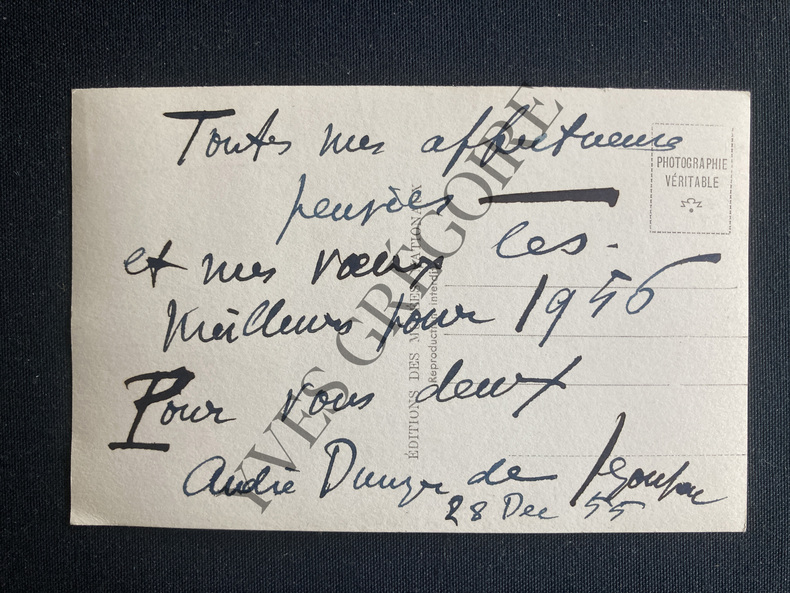 Toutes mes affectueuses
pensées —
et mes vœux les
Meilleurs pour 1956
Pour vous deux
André de
28 Dec 55
PHOTOGRAPHIE
VÉRITABLE
ÉDITIONS DES MUSÉES NATIONAUX
Reproduction interdite
YVES GRÉGOIRE